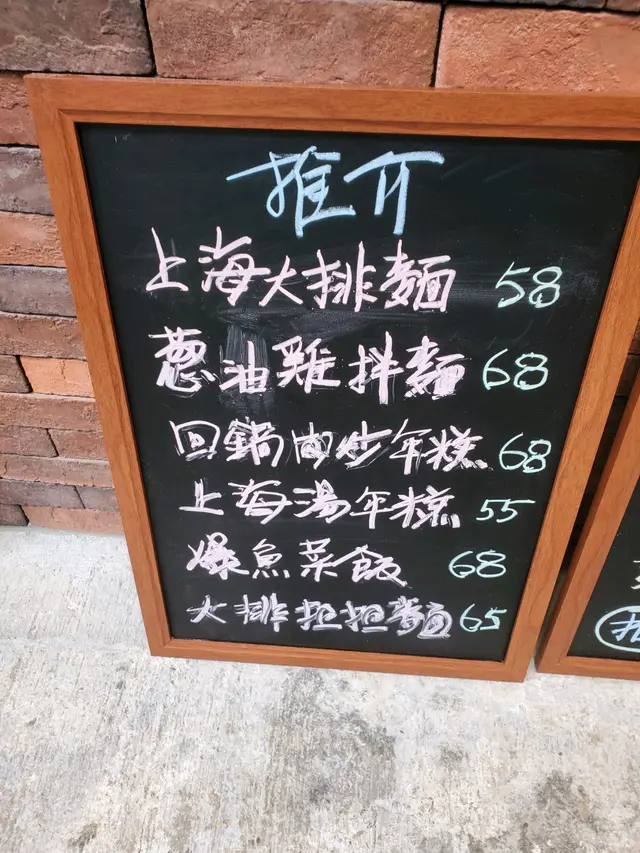 推介
上海大排麵 58
蔥油雞拌麵 68
回鍋肉炒年糕 68
上海湯年糕 55
爆魚菜飯 68
大排担担麵 65